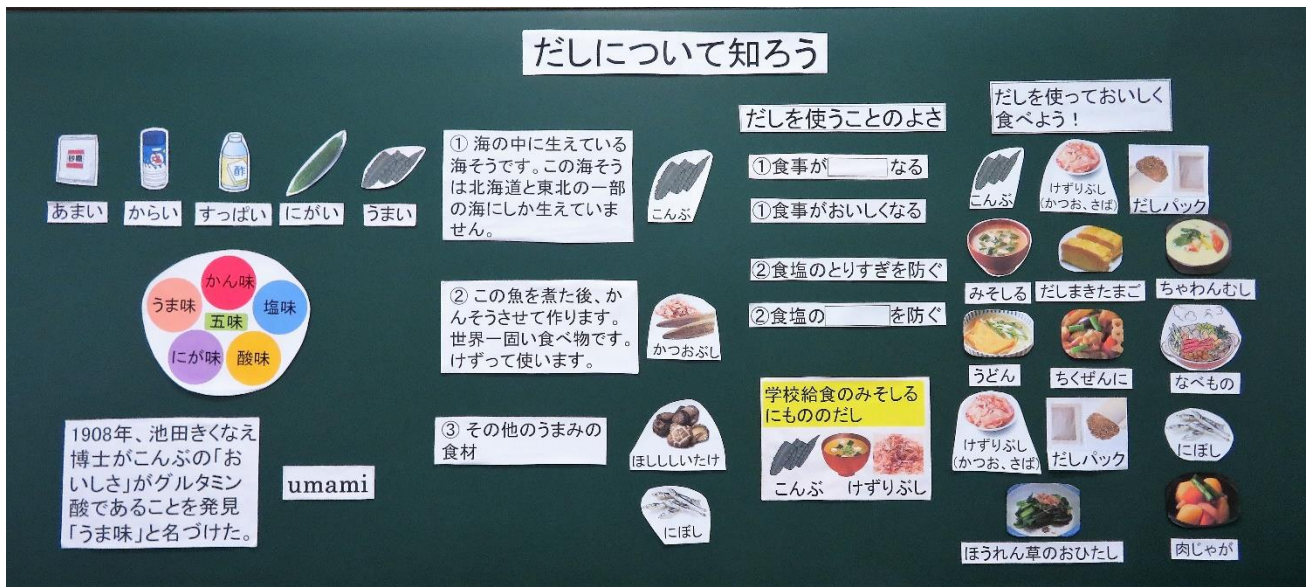 だしについて知ろう
砂糖
酢
あまい
からい
すっぱい
にがい
うまい
かん味
うま味
塩味
五味
にが味
酸味
1908年、池田きくなえ
博士がこんぶの「お
いしさ」がグルタミン
酸であることを発見
「うま味」と名づけた。
umami
① 海の中に生えている
海そうです。この海そう
は北海道と東北の一部
の海にしか生えていま
せん。
こんぶ
② この魚を煮た後、か
んそうさせて作ります。
世界一固い食べ物です。
けずって使います。
かつおぶし
③ その他のうまみの
食材
ほししいたけ
にぼし
だしを使うことのよさ
①食事が なる
①食事がおいしくなる
②食塩のとりすぎを防ぐ
②食塩の を防ぐ
学校給食のみそしる
にもののだし
こんぶ
けずりぶし
だしを使っておいしく
食べよう！
こんぶ
けずりぶし
(かつお、さば)
だしパック
みそしる
だしまきたまご
ちゃわんむし
うどん
ちくぜんに
なべもの
けずりぶし
(かつお、さば)
だしパック
にぼし
ほうれん草のおひたし
肉じゃが